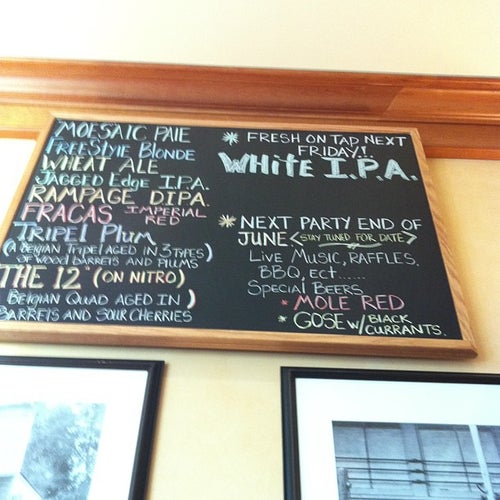 MOESAIC PALE
FREESTYLE BLONDE
WHEAT ALE
JAGGED Edge I.P.A.
RAMPAGE D.I.P.A.
FRACAS IMPERIAL RED
TRIPEL PLUM
(A BELGIAN TRIPEL AGED IN 3 TYPES
OF WOOD BARRELS AND PLUMS)
THE 12 (ON NITRO)
BELGIAN QUAD AGED IN
BARRELS AND SOUR CHERRIES)
* FRESH ON TAP NEXT
FRIDAY!!
WHITE I.P.A.
* NEXT PARTY END OF
JUNE <STAY TUNED FOR DATE>
LIVE MUSIC, RAFFLES,
BBQ, ECT......
SPECIAL BEERS
* MOLE RED
* GOSE W/ BLACK
CURRANTS.